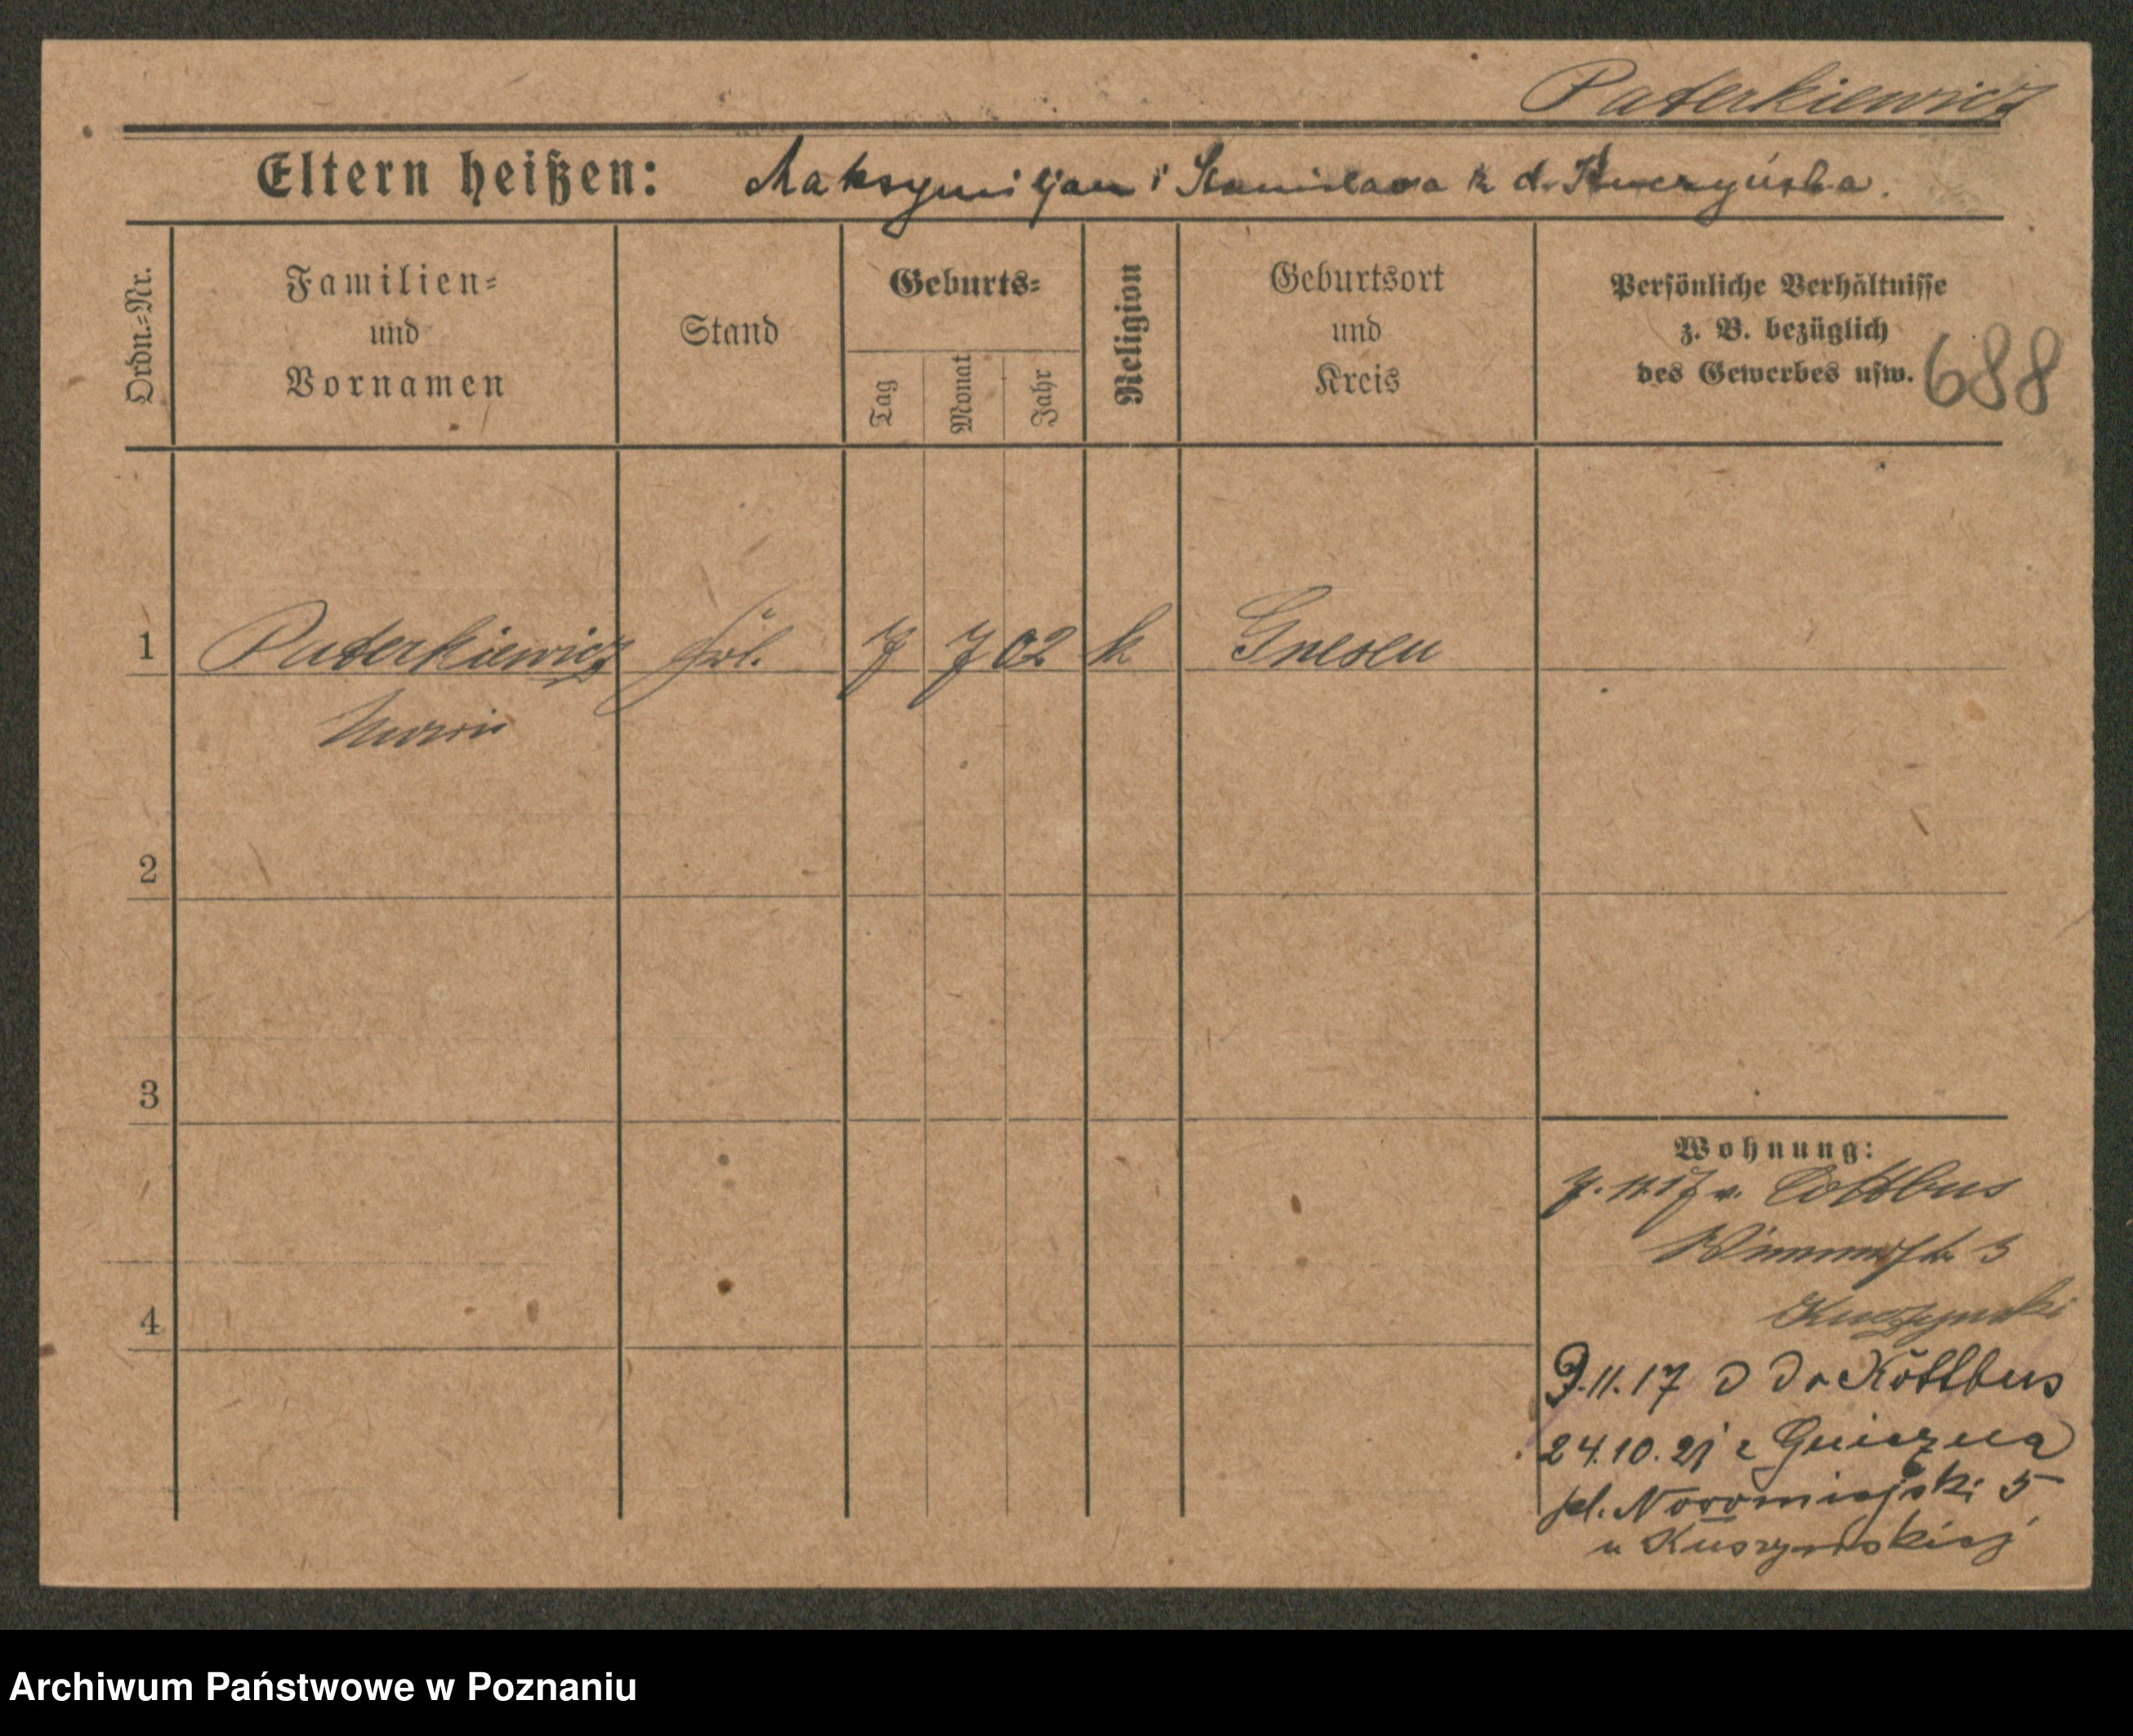 Paterkiewicz
Eltern heißen: Maksymiljan i Stanisława z d. Kuczyńska.
Ordn.-Nr.
Familien-
und
Vornamen
Stand
Geburts-
Tag
Monat
Jahr
Religion
Geburtsort
und
Kreis
Persönliche Verhältnisse
z. B. bezüglich
des Gewerbes usw.
688
1 Paterkiewicz Frl. 7 7 02 k Gnesen
2
3
4
Wohnung:
7.11.17 v. Cottbus
3
9.11.17 Kottbus
24.10.21 z Gniezna
pl. Nowomiejski 5
u Kuszyńskiej
Archiwum Państwowe w Poznaniu